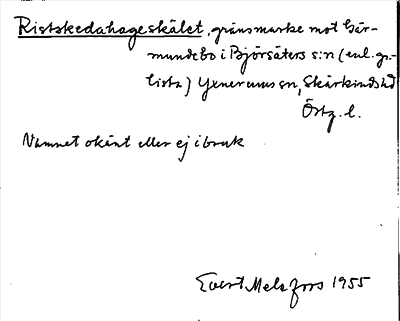 Ristskedahageskälet, gränsmärke mot Gär-
mundebo i Björsäters s:n (enl. gr.-
lista) Yxnerums sn, Skärkinds hd
Östg. l.
Namnet okänt eller ej i bruk
Evert Melefors 1955